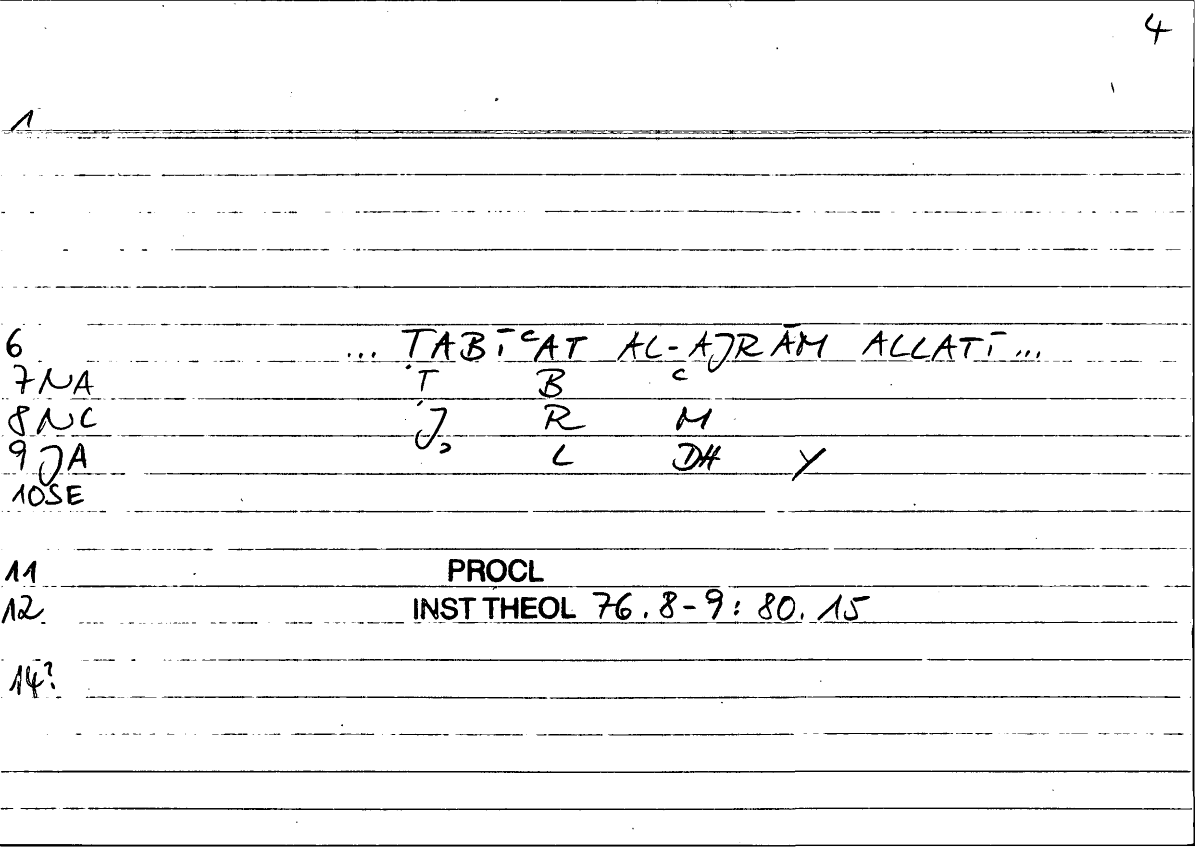 4
1
6 ... ṬABĪʿAT AL-AJRĀM ALLATĪ ...
7 NA Ṭ B ʿ
8 NC J R M
9 JA L DH Y
10 SE
11 PROCL
12 INST THEOL 76.8-9 : 80.15
14?